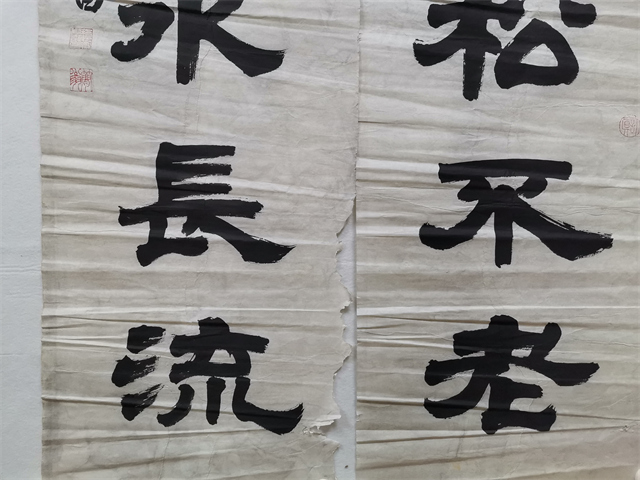 松不老
水長流